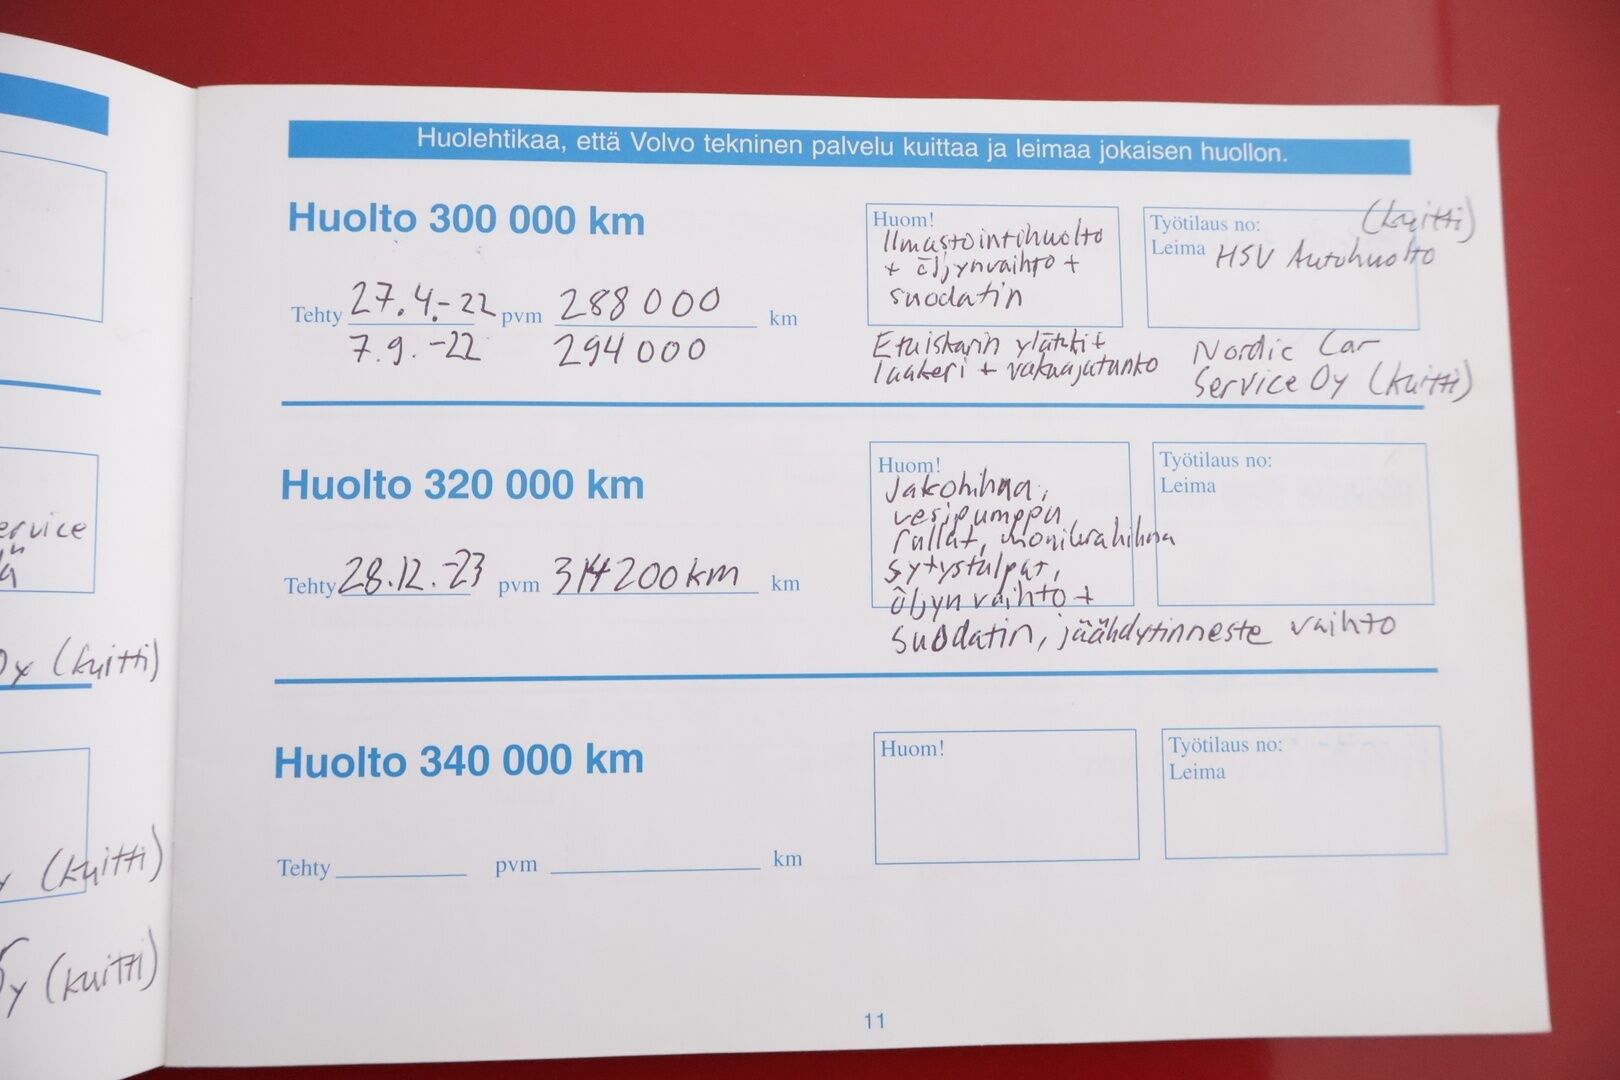 Huolehtikaa, että Volvo tekninen palvelu kuittaa ja leimaa jokaisen huollon.
Huolto 300 000 km
Tehty 27.4.-22 pvm 288 000 km
7.9.-22 294 000
Huom!
Ilmastointihuolto
+ öljynvaihto +
suodatin
Etuiskarin ylätuki +
laakeri + vakaajatanko
Työtilaus no: (kuitti)
Leima HSV Autohuolto
Nordic Car
Service Oy (kuitti)
Huolto 320 000 km
Tehty 28.12.-23 pvm 314 200 km km
Huom!
Jakohihna,
vesipumppu
rullat, monikrahihna
sytystulpat,
öljyn vaihto +
suodatin, jäähdytinneste vaihto
Työtilaus no:
Leima
Huolto 340 000 km
Tehty pvm km
Huom!
Työtilaus no:
Leima
11
ervice
Oy (kuitti)
y (kuitti)
Oy (kuitti)